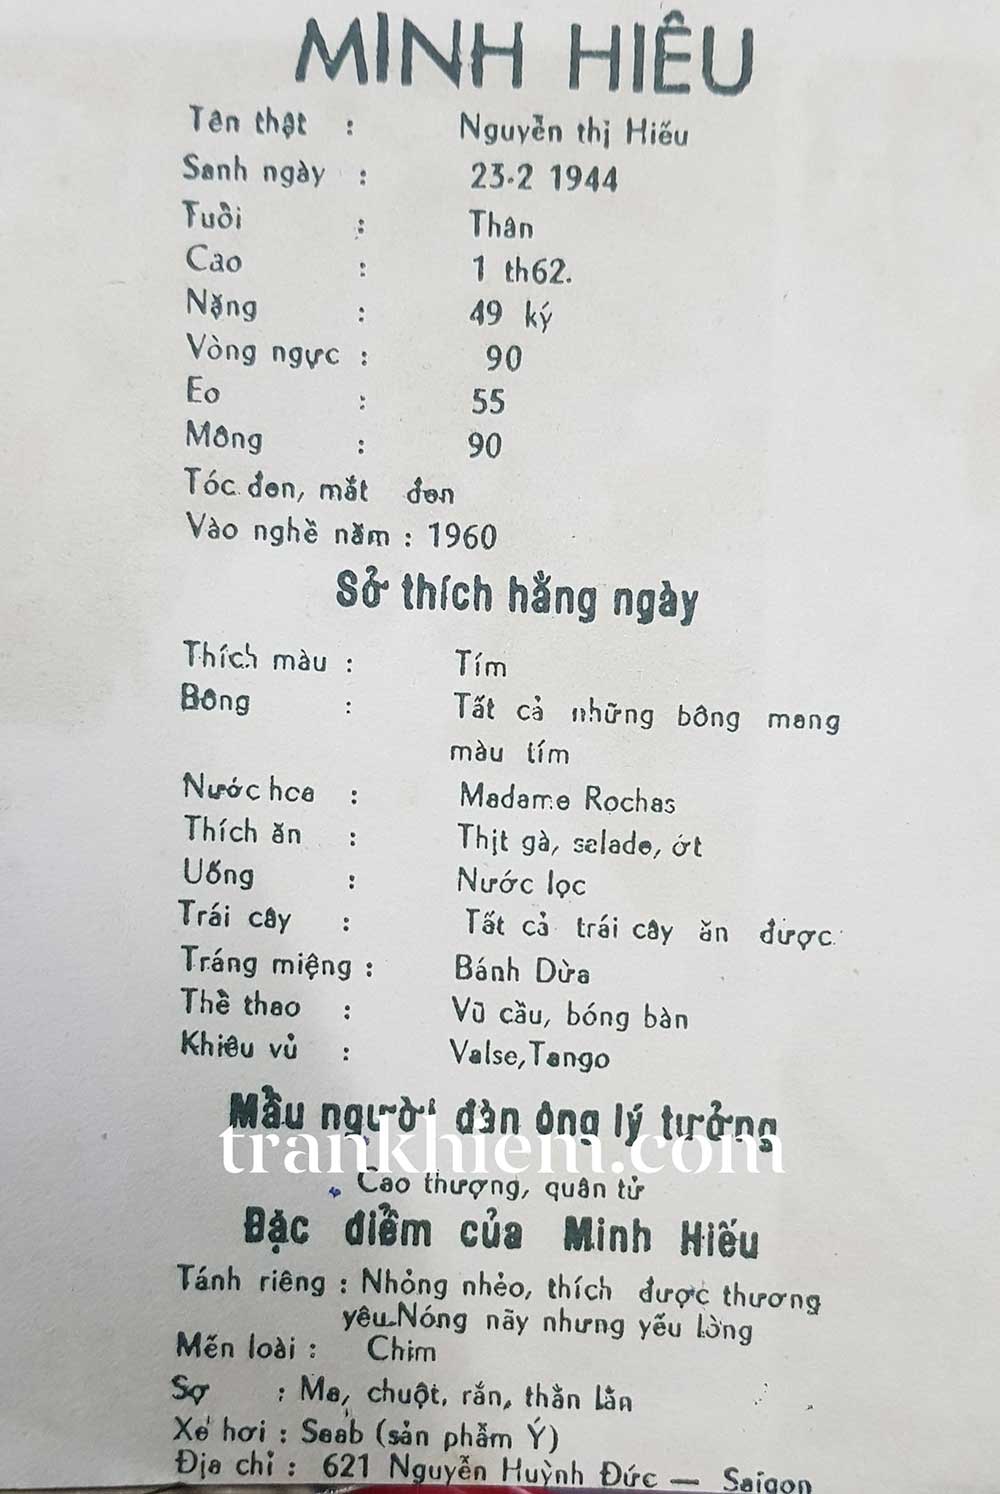 MINH HIẾU
Tên thật : Nguyễn thị Hiếu
Sanh ngày : 23-2 1944
Tuổi : Thân
Cao : 1 th62.
Nặng : 49 ký
Vòng ngực : 90
Eo : 55
Mông : 90
Tóc đen, mắt đen
Vào nghề năm : 1960
Sở thích hằng ngày
Thích màu : Tím
Bông : Tất cả những bông mang
màu tím
Nước hoa : Madame Rochas
Thích ăn : Thịt gà, salade, ớt
Uống : Nước lọc
Trái cây : Tất cả trái cây ăn được
Tráng miệng : Bánh Dừa
Thể thao : Vũ cầu, bóng bàn
Khiêu vũ : Valse, Tango
Mẫu người đàn ông lý tưởng
trankhiem.com
Cao thượng, quân tử
Đặc điểm của Minh Hiếu
Tánh riêng : Nhỏng nhẻo, thích được thương
yêu. Nóng nãy nhưng yếu lòng
Mến loài : Chim
Sợ : Ma, chuột, rắn, thằn lằn
Xe hơi : Saab (sản phẩm Ý)
Địa chỉ : 621 Nguyễn Huỳnh Đức — Saigon